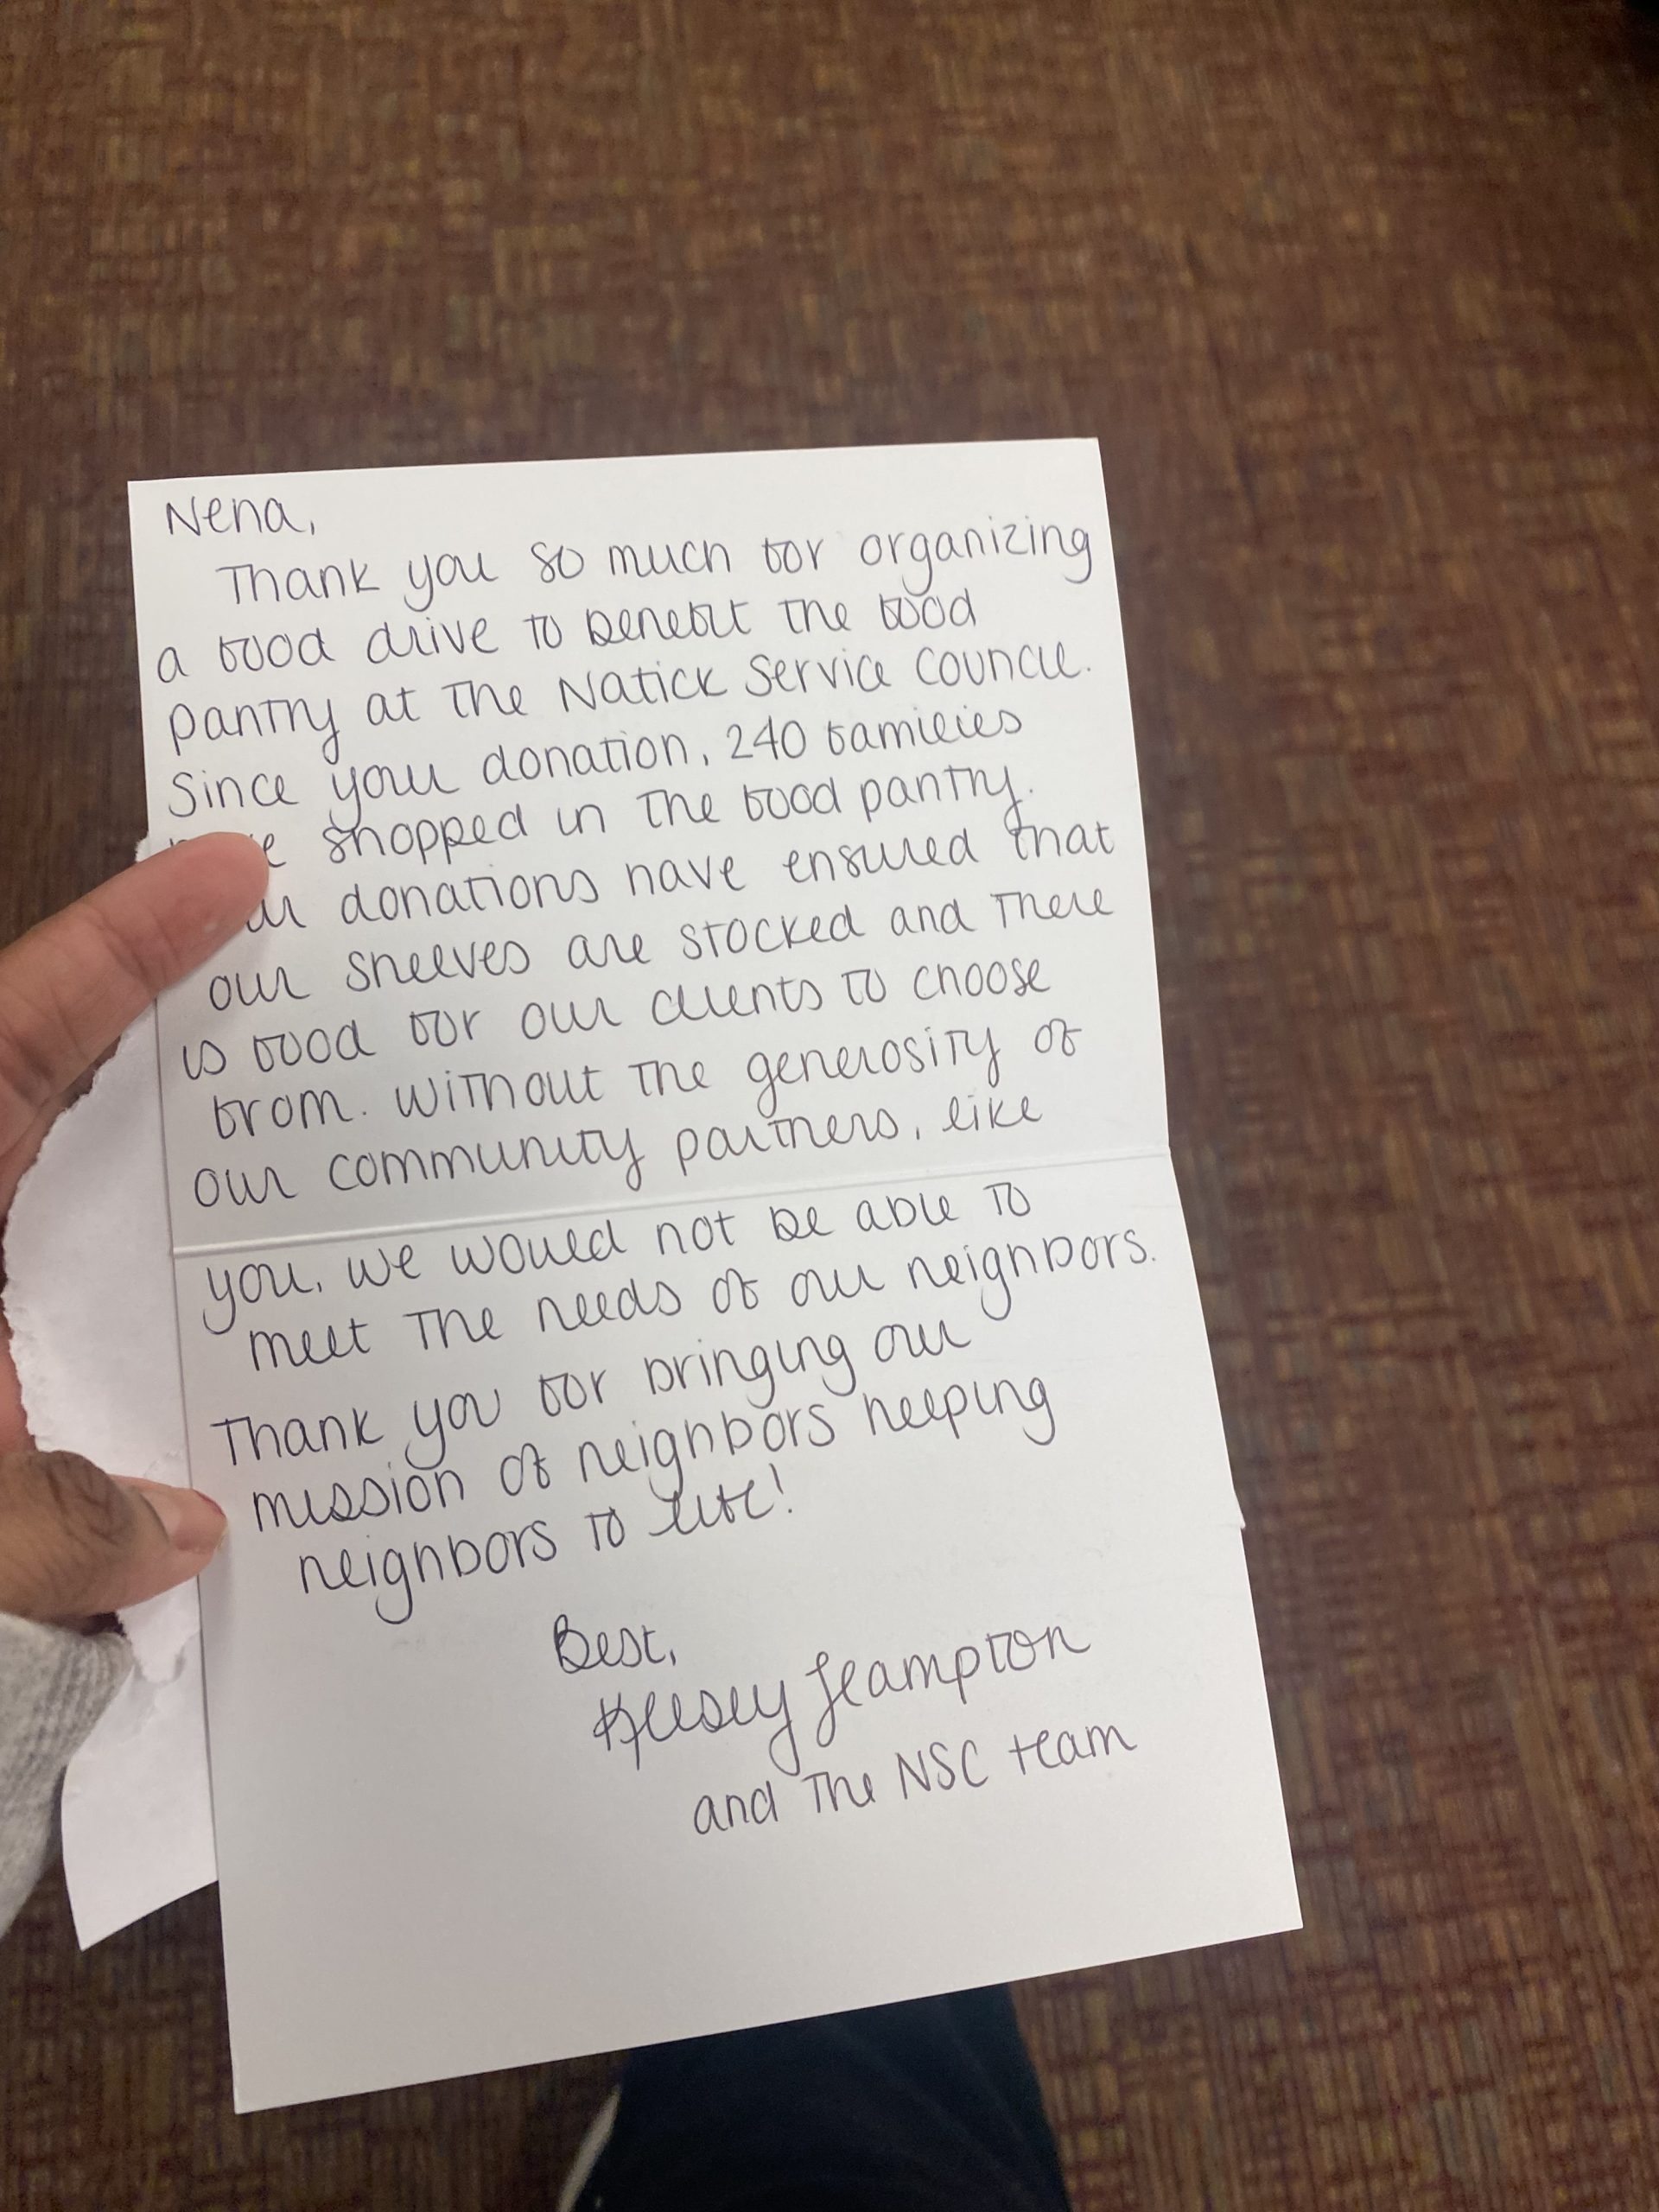 Nena,
Thank you so much for organizing
a food drive to benefit the food
pantry at the Natick Service Council.
Since your donation, 240 families
shopped in the food pantry.
donations have ensured that
our shelves are stocked and there
is food for our clients to choose
from. Without the generosity of
our community partners, like
you, we would not be able to
meet the needs of our neighbors.
Thank you for bringing our
mission of neighbors helping
neighbors to life!
Best,
Kelsey Hampton
and the NSC team